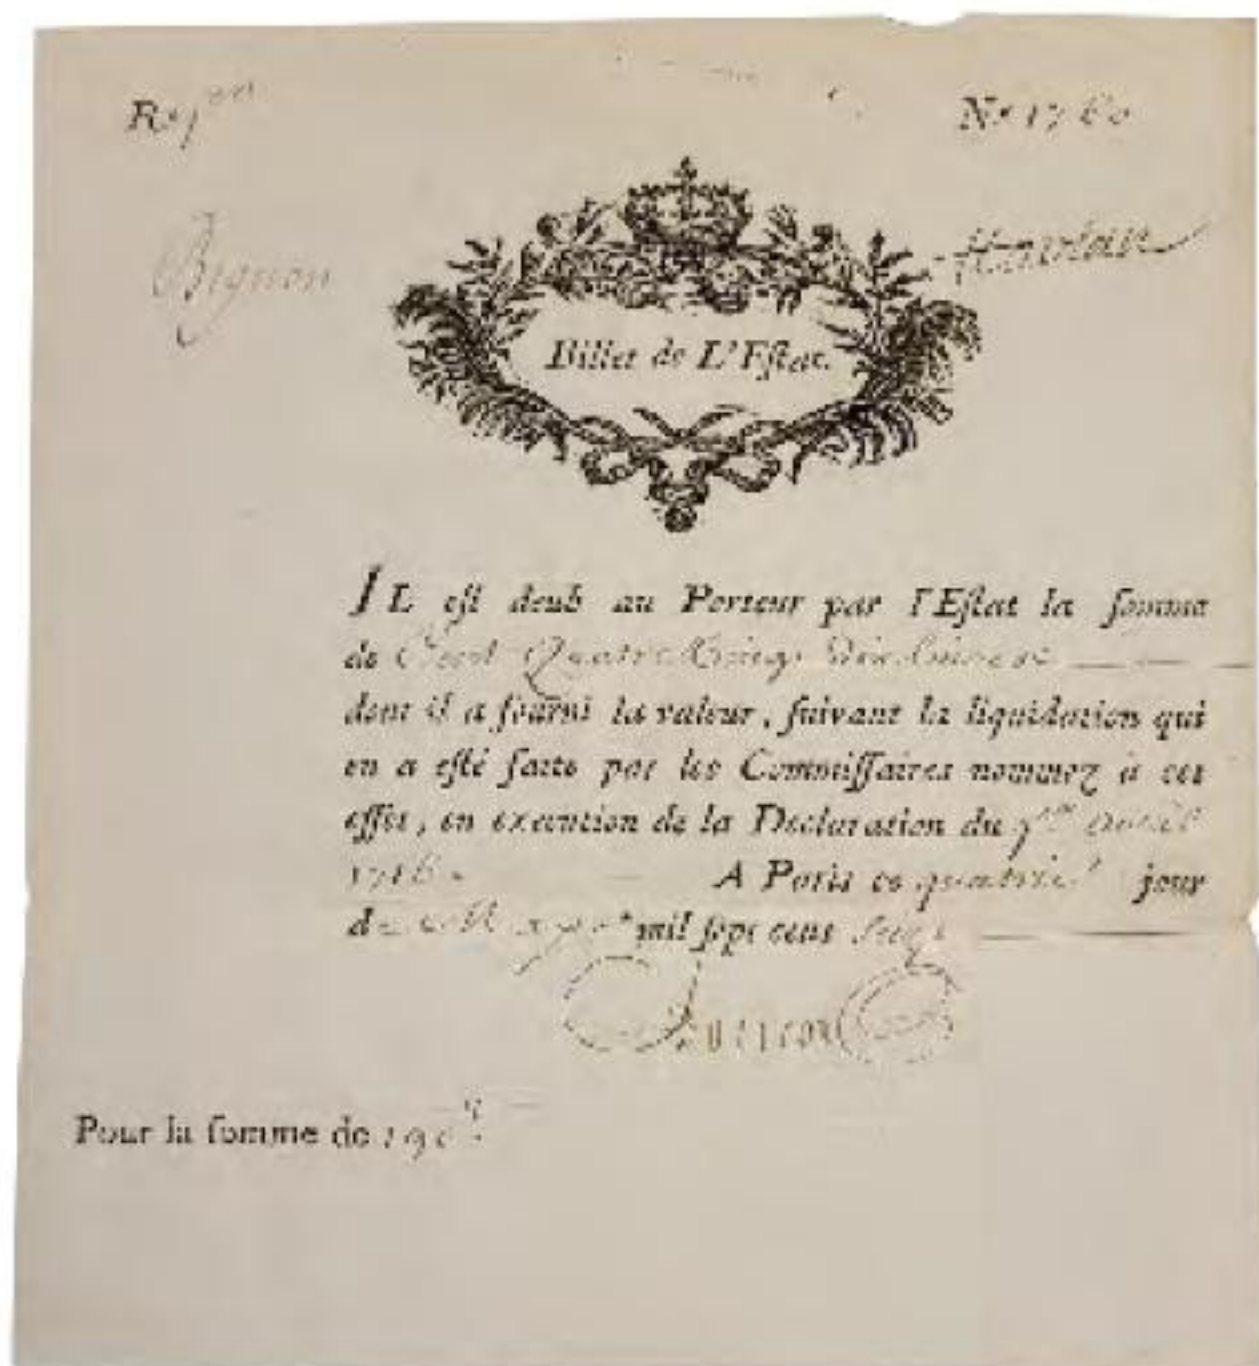 N.º 1760
Bignon
Billet de L'Estat.
IL est deub au Porteur par l'Estat la somme
de Cent Quatre Vingt dix livres
dont il a fourni la valeur, suivant la liquidation qui
en a esté faite par les Commissaires nommez à cet
effet, en execution de la Declaration du
1716. A Paris ce quatrie.e jour
de mil sept cens Seize
Pour la somme de 190